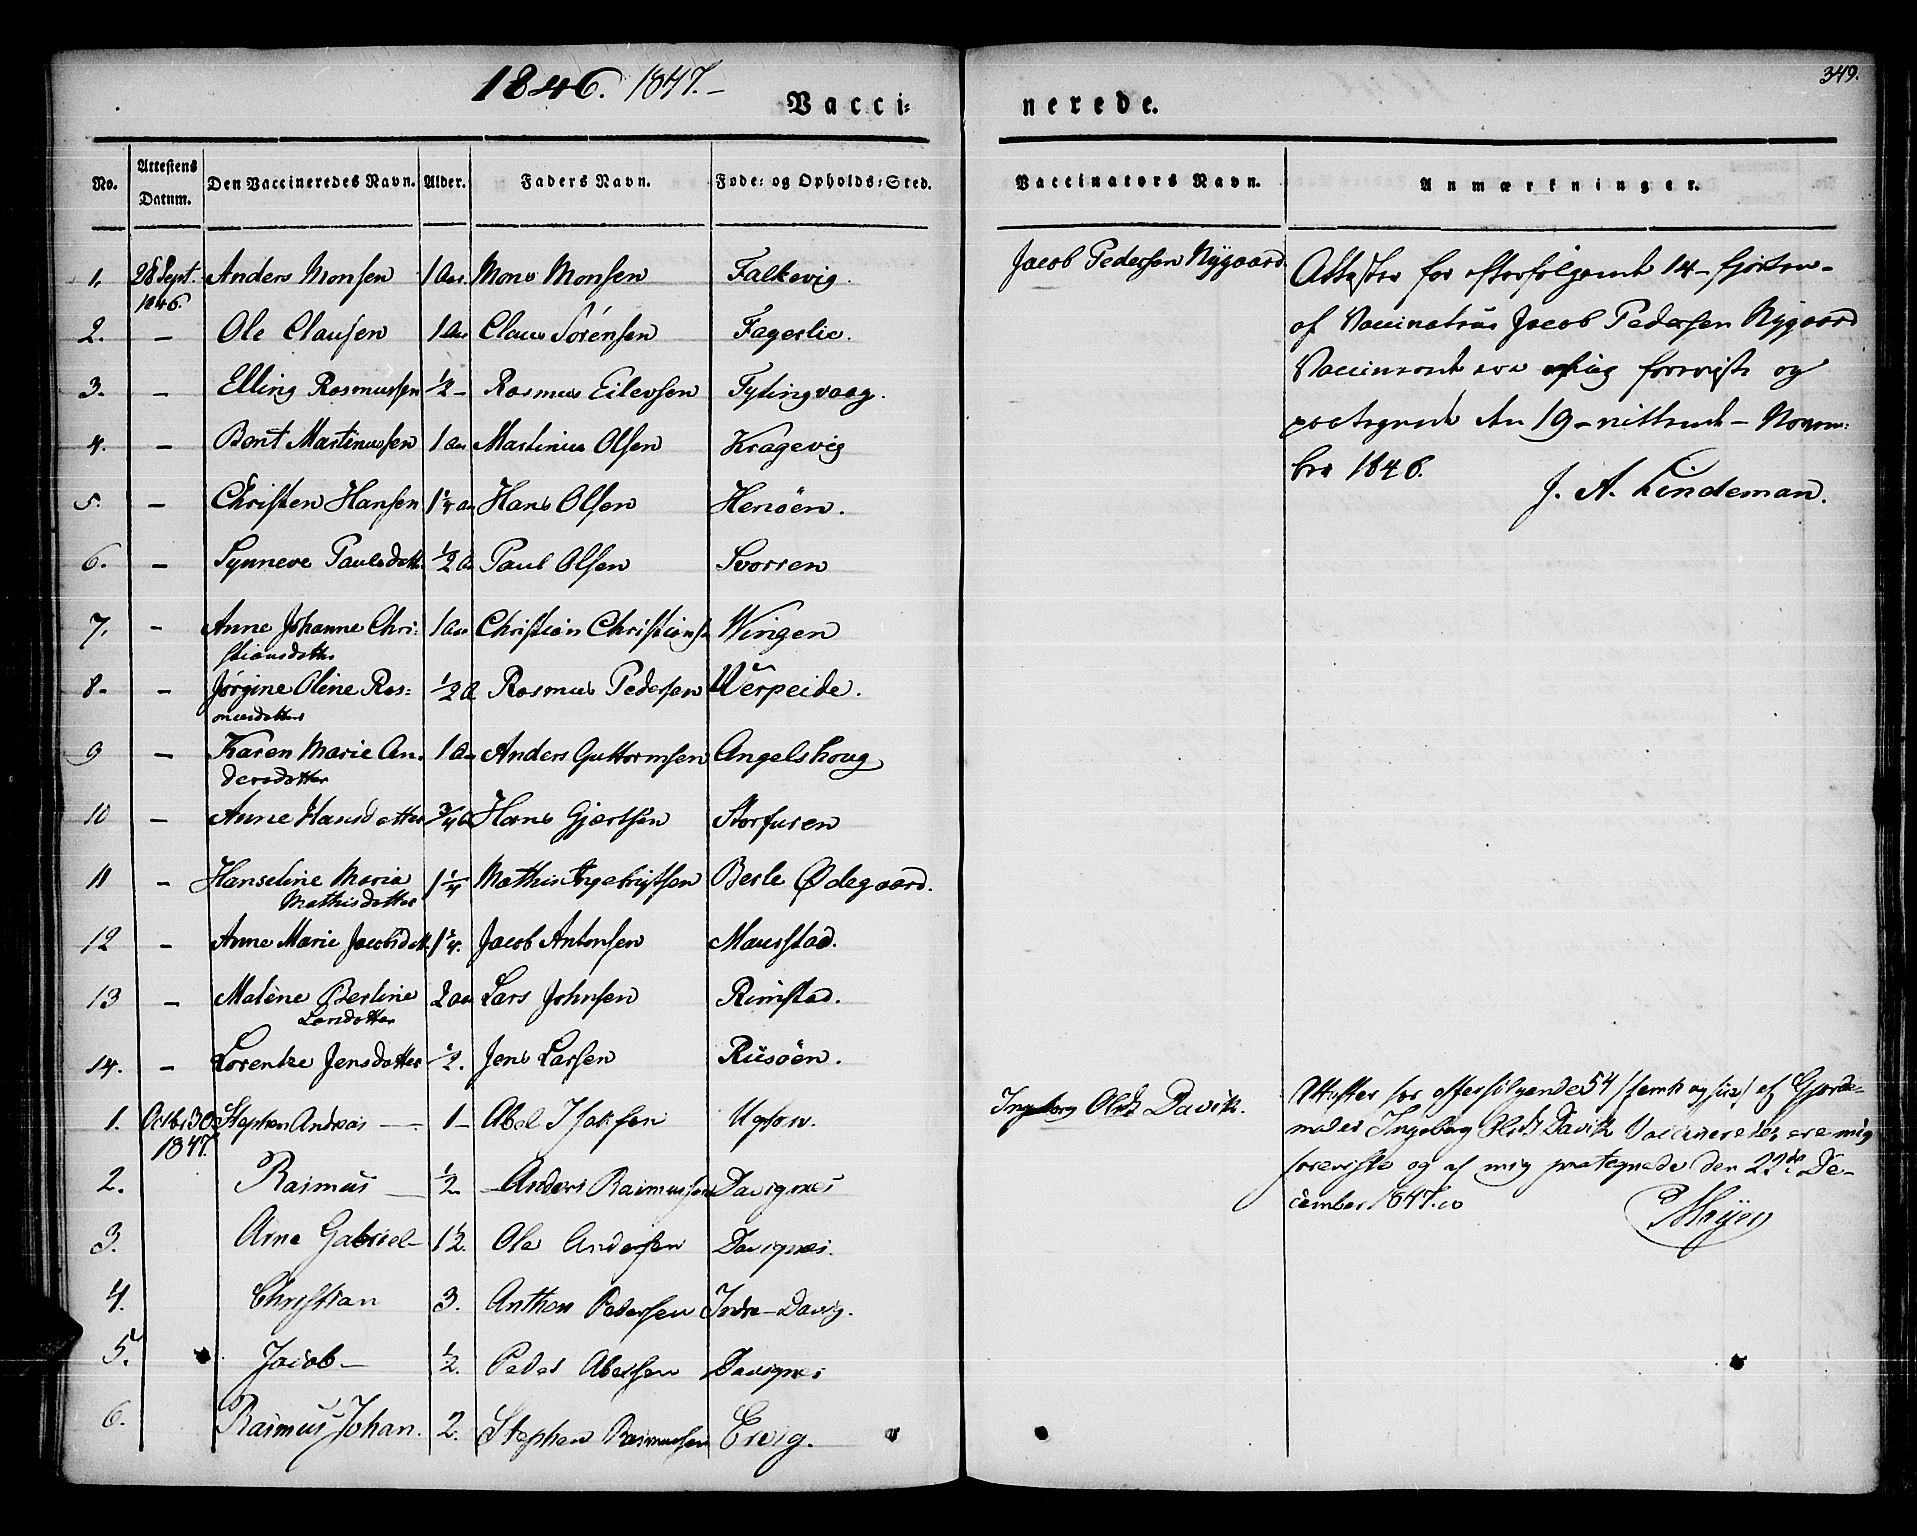 1846. 1847.
349.
Vacci=
nerede.
No. Attestens Datum. Den Vaccineredes Navn. Alder. Faders Navn. Føde= og Opholds=Sted.
Vaccinators Navn. Anmærkninger.
1. 28 Sept. 1846. Anders Monsen 1 Aar Mons Monsen Falkevig. Jacob Pedersen Nygaard
2. – Ole Clausen 1 Aar Claus Sörensen Fagerlie.
3. – Elling Rasmussen ½ – Rasmus Eilevsen Tytingvaag.
4. – Bent Martinussen 1 Aar Martinus Olsen Kragevig
5. – Christen Hansen 1¼ A Hans Olsen Henöen.
6. – Synneve Paulsdatt. ½ A Paul Olsen Svorren
7. – Anne Johanne Chri=
stiansdatter 1 Aar Christian Christians. Wingen
8. – Jörgine Oline Ras=
musdatter ½ A Rasmus Pedersen Werpeide.
9 – Karen Marie An=
dersdatter 1 Aar Anders Guttormsen Angelshoug
10 – Anne Hansdatter ¾ A Hans Gjertsen Storfuren
11 – Hanseline Maria
Mathisdatter 1¼ Mathis Ingebrigtsen Berle Ødegaard.
12 – Anne Marie Jacobsdatt. 1¼. Jacob Antonsen Maurstad.
13 – Maléne Berline
Larsdatter 2 Aar Lars Johnsen Rimstad.
14. – Lorentze Jensdatter ½. Jens Larsen Risöen.
Attester for efterfölgende 14 – fjorten –
af Vaccinatrus Jacob Pedersen Nygaard
Vaccinerede ere mig foreviste og
paategnede den 19 – nittende – Novem=
ber 1846.
J. A. Lindeman.
1. Octbr 30 1847. Stephen Andreas – 1 – Abel Isaksen Ingeborg Olsd. Davik.
2. Rasmus – ½ – Anders Rasmussen Davignes
3. Arne Gabriel – 1½. Ole Andersen Davignes.
4. Christian 3. Anthon Pedersen Indre – Davig.
5. Jacob – ½. Peder Abelsen Davignes
6. Rasmus Johan. 2. Stephen Rasmussen Ervig.
Attester for efterfölgende 54 (femti og fire) af Gjorde=
moder Ingeborg Olsd. Davik Vaccinerede, ere mig
foreviste og af mig paategnede den 22de De=
cember 1847.
Meyer